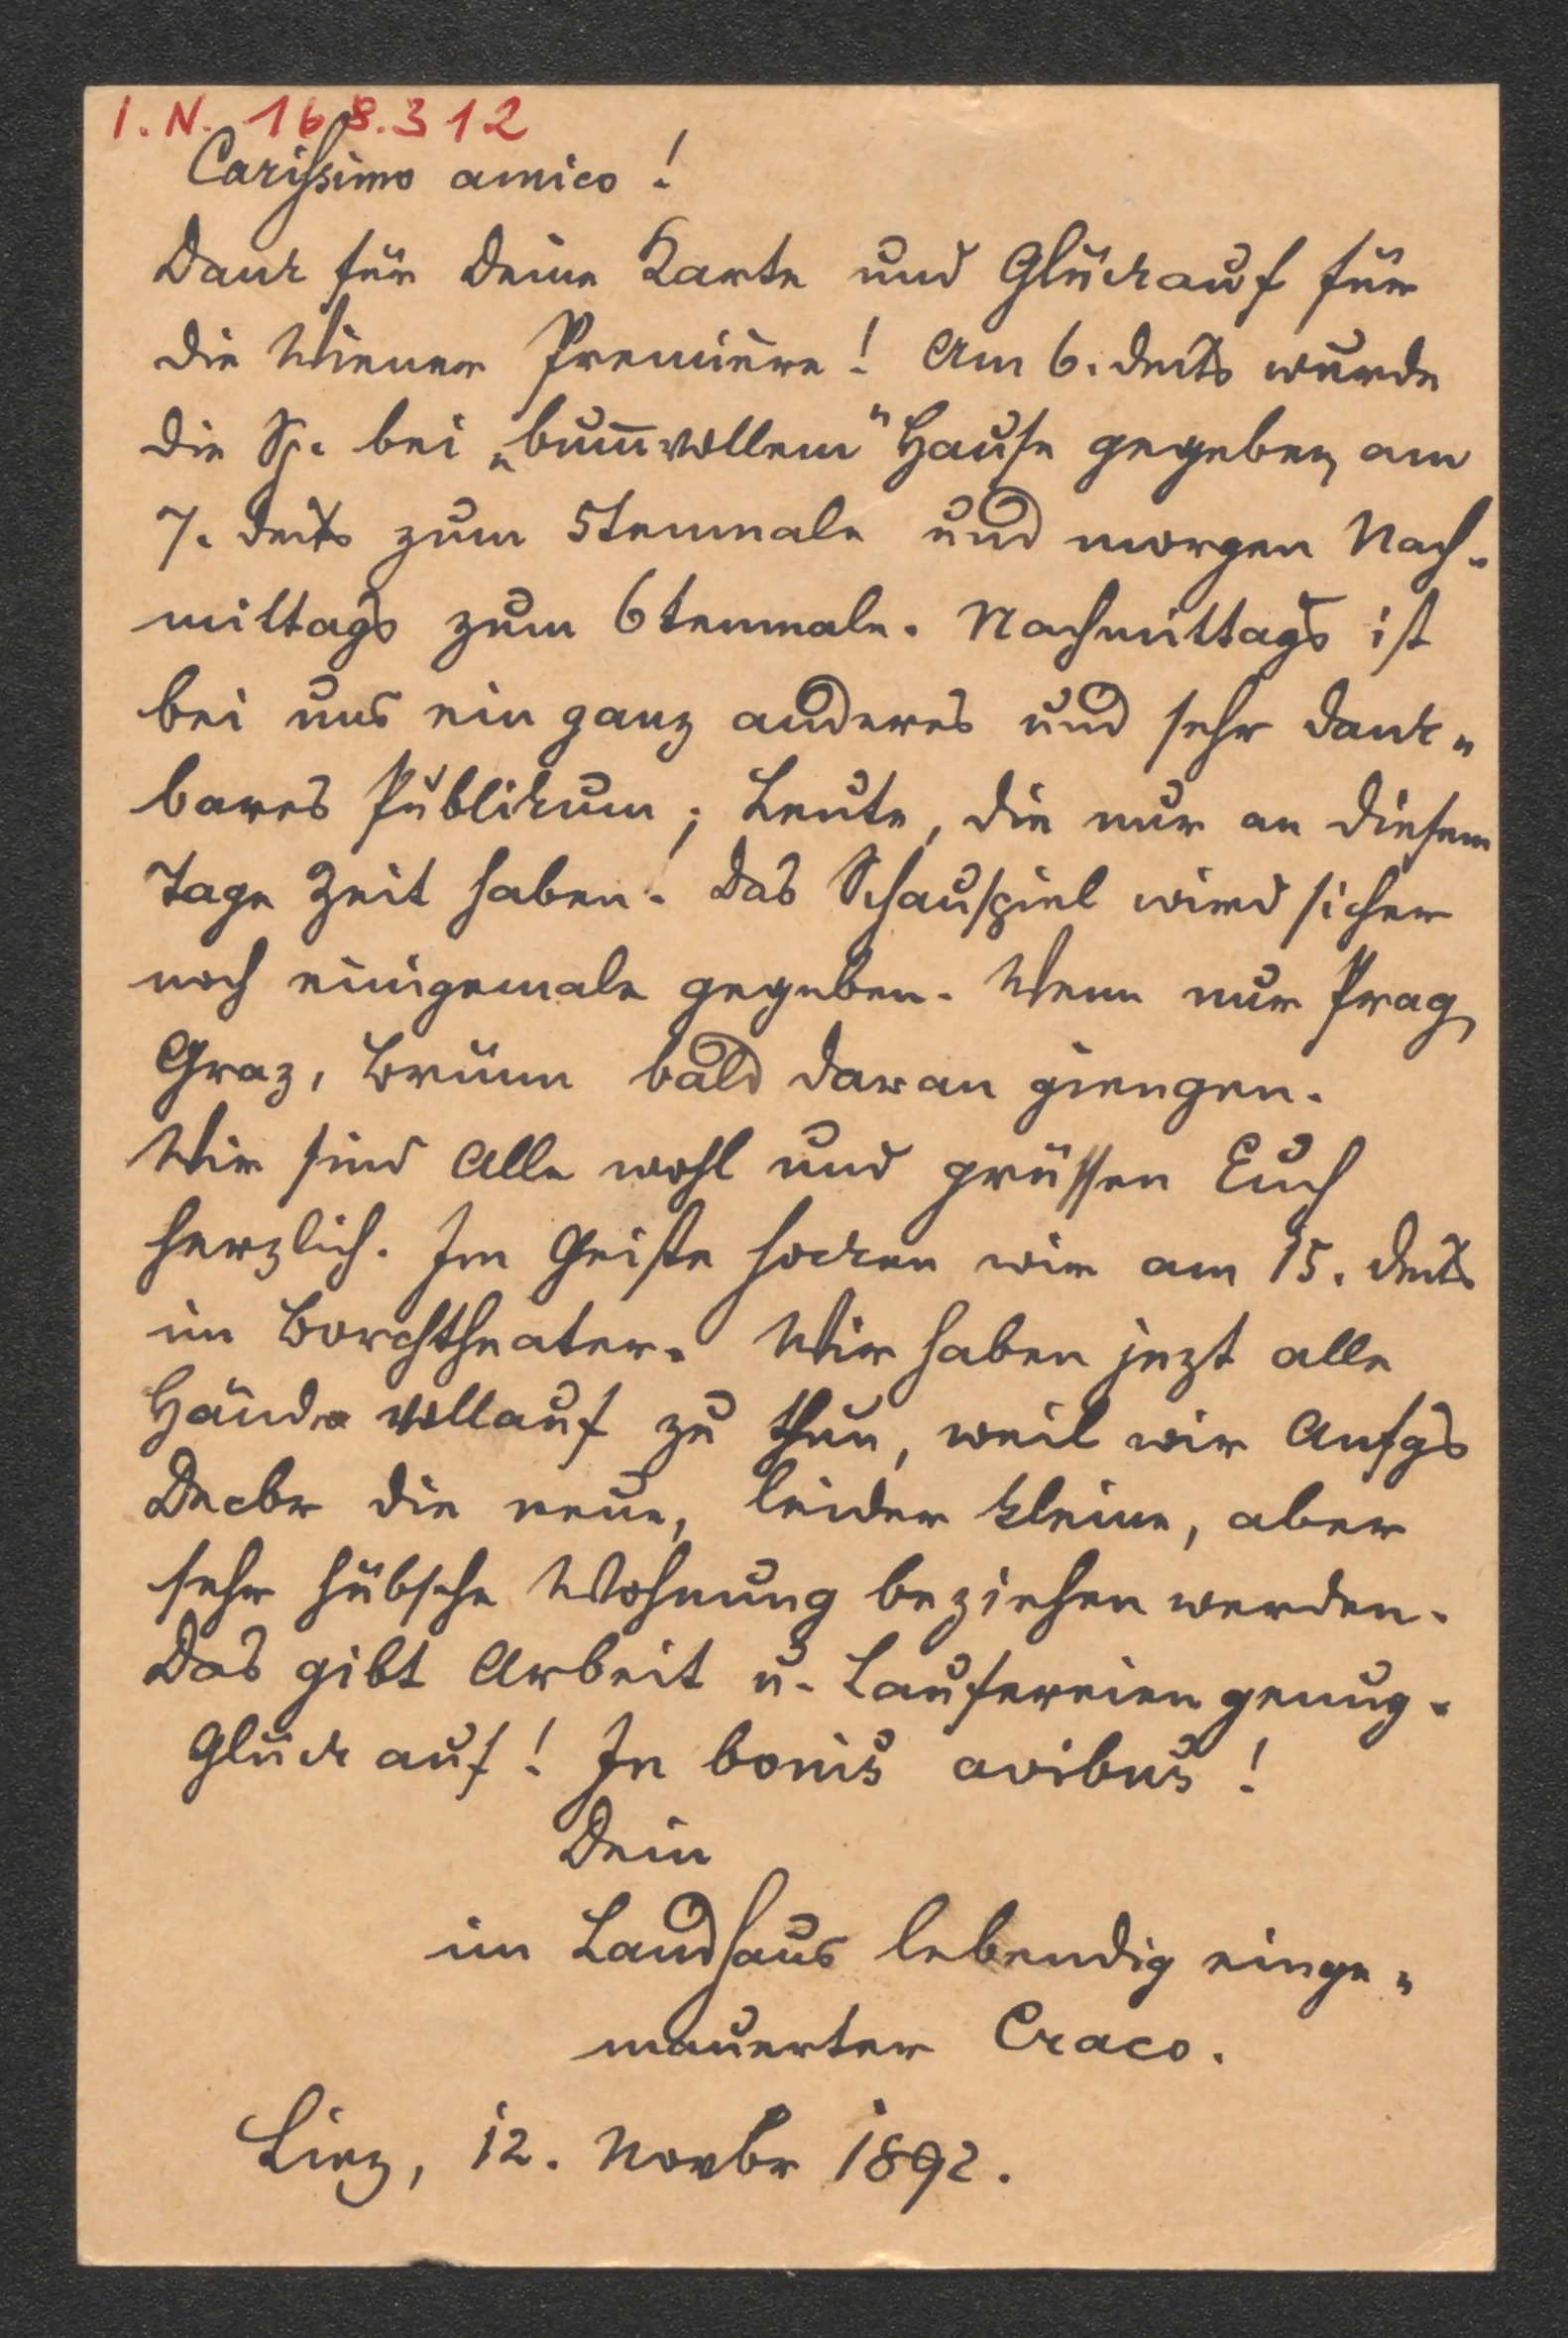 I. N. 168.312
Carissimo amico!
Dank für Deine Karte und Glückauf für
die Wiener Première! Am 6. dets wurde
die Sp. bei „bum̅vollem" Hause gegeben, am
7. dets zum 5tenmale und morgen Nach-
mittags zum 6tenmale. Nachmittags ist
bei uns ein ganz anderes und sehr dank-
bares Publikum; Leute, die nur an diesem
Tage Zeit haben. Das Schauspiel wird sicher
noch einigemale gegeben. Wenn nur Prag,
Graz, Brünn bald daran giengen.
Wir sind Alle wohl und grüssen Euch
herzlich. Im Geiste hocken wir am 15. dets
im Borchtheater. Wir haben jezt alle
Hände vollauf zu thun, weil wir Anfgs
Decbr die neue, leider kleine, aber
sehr hübsche Wohnung beziehen werden.
Das gibt Arbeit u. Laufereien genug.
Glück auf! In bonis avibus!
Dein
im Landhaus lebendig einge-
mauerter Craco.
Linz, 12. Novbr 1892.